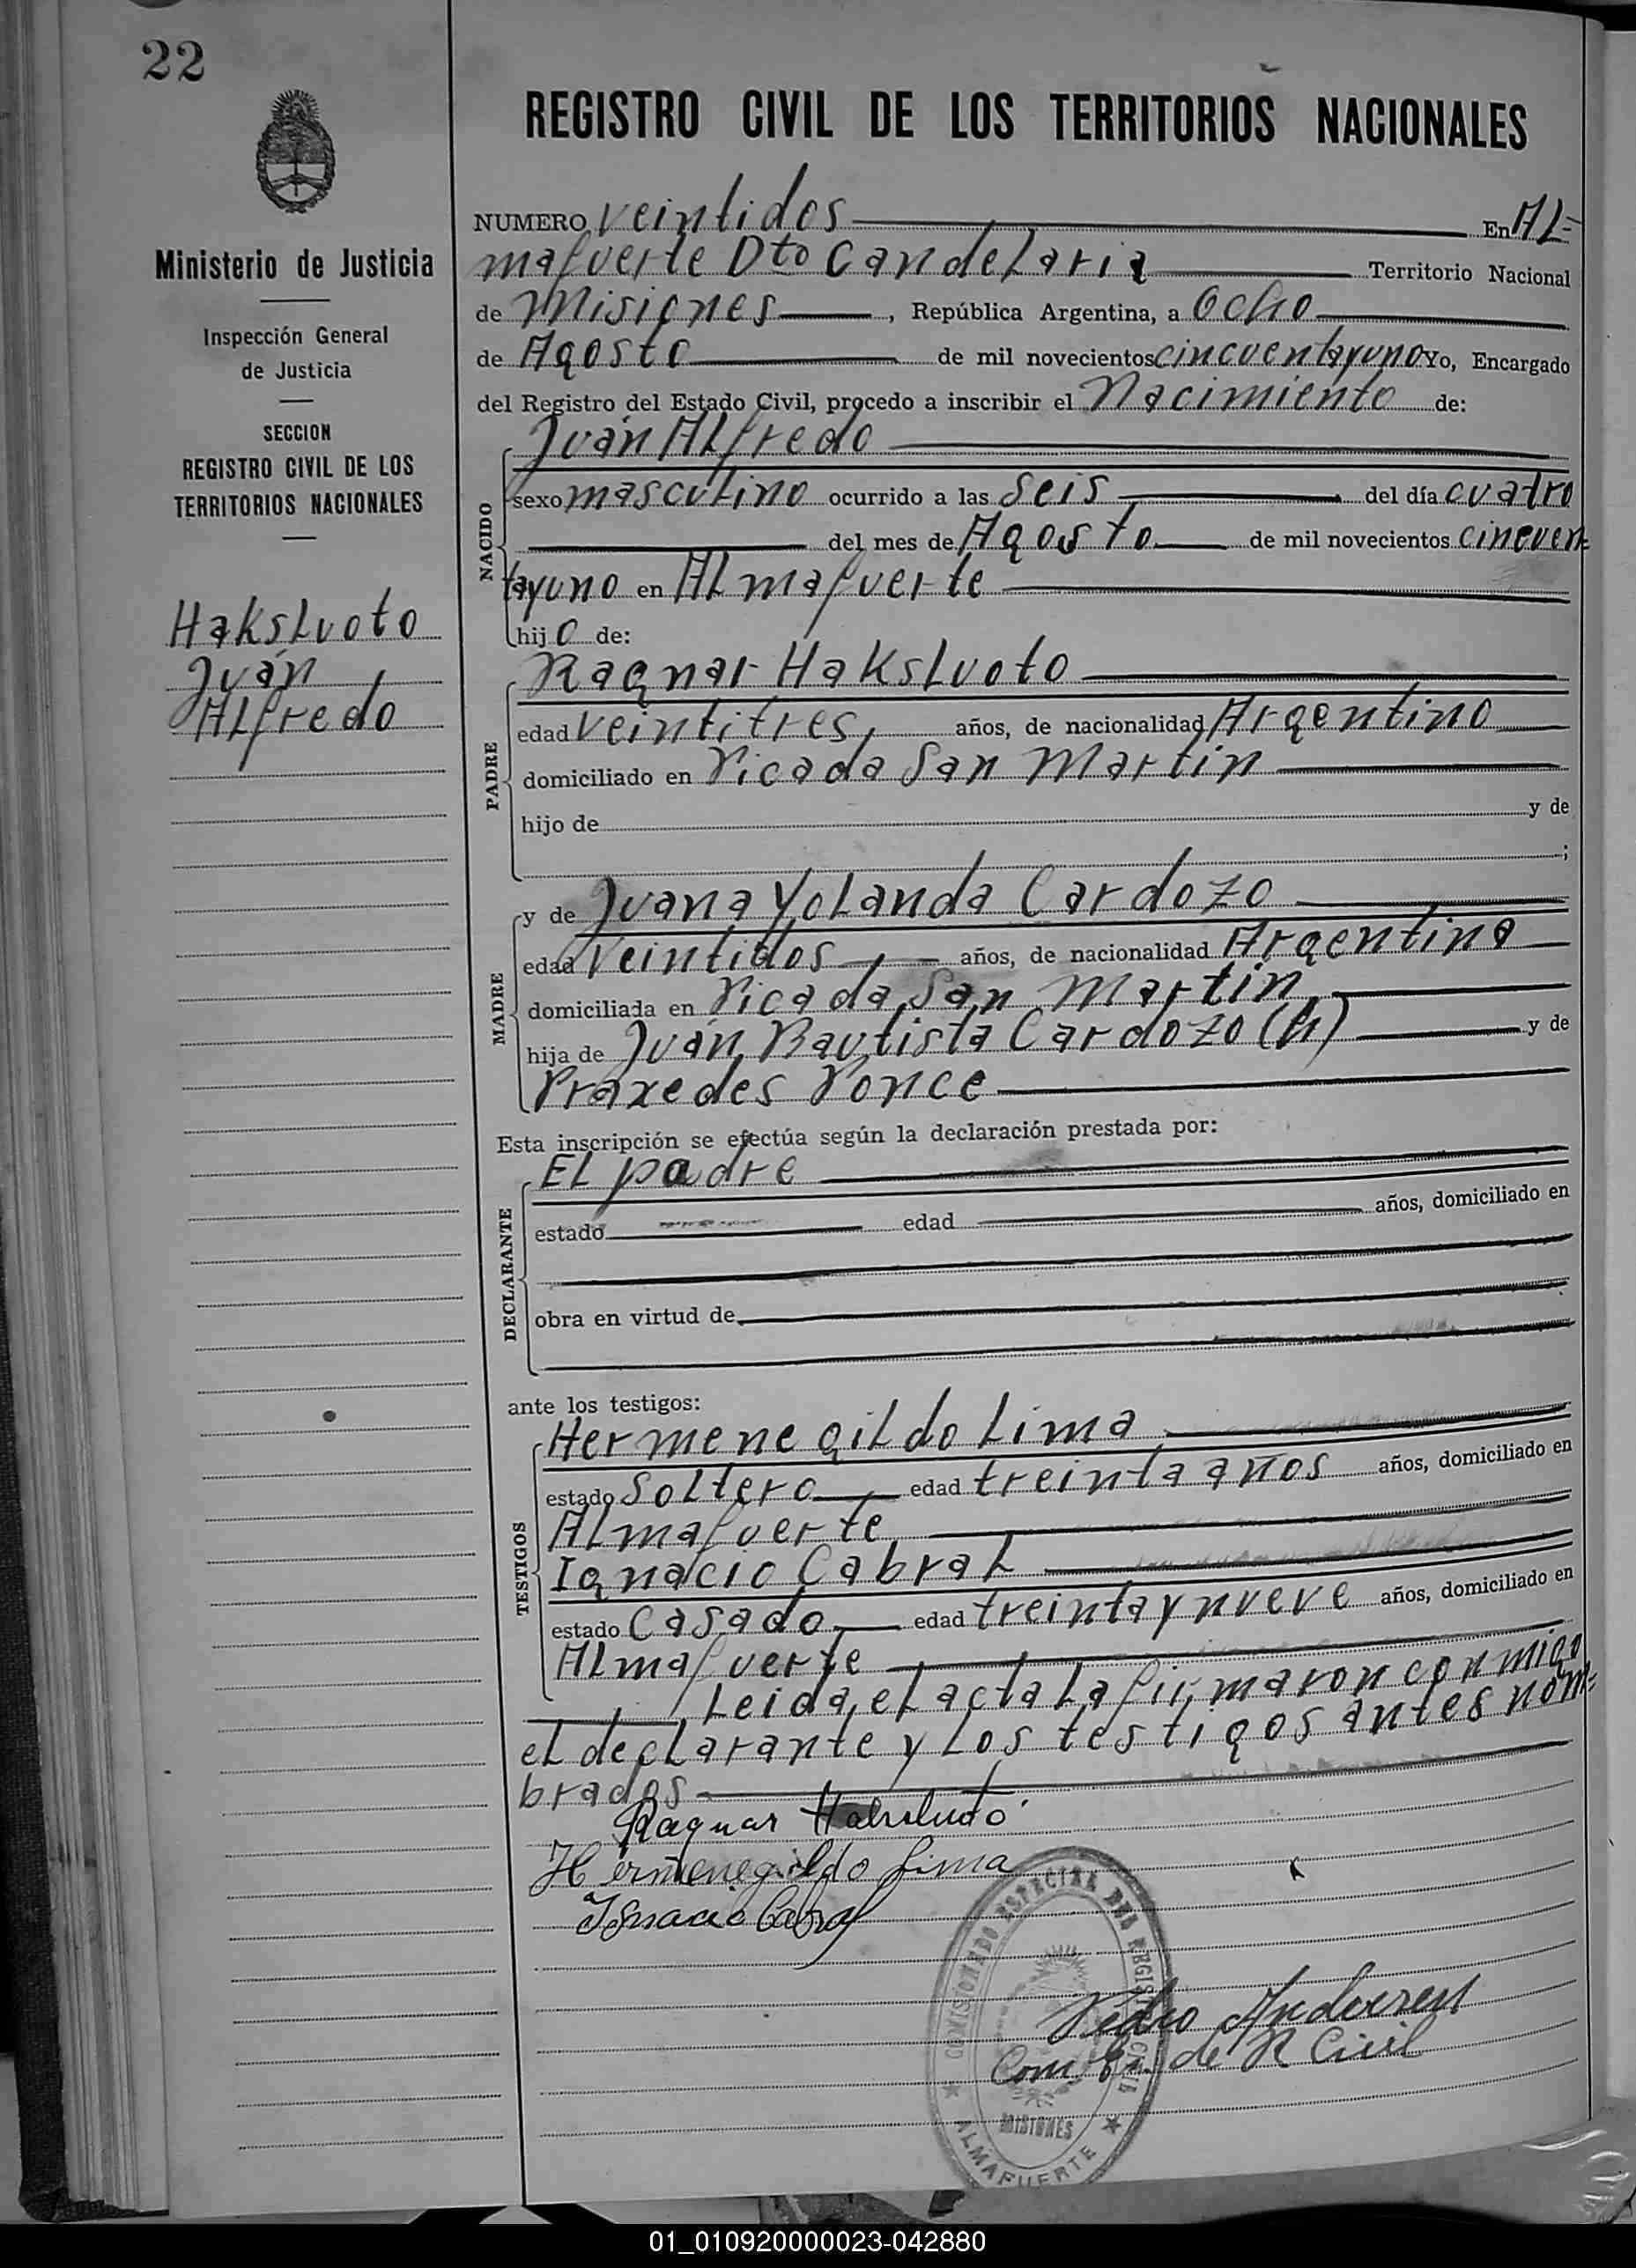 22
Ministerio de Justicia
Inspección General
de Justicia
SECCION
REGISTRO CIVIL DE LOS
TERRITORIOS NACIONALES
Haksluoto
Juan
Alfredo
REGISTRO CIVIL DE LOS TERRITORIOS NACIONALES
NUMERO veintidos En Al=
mafuerte Dto Candelaria Territorio Nacional
de Misiones, República Argentina, a Ocho
de Agosto de mil novecientos cincuentayuno Yo, Encargado
del Registro del Estado Civil, procedo a inscribir el Nacimiento de:
Juan Alfredo
NACIDO
sexo masculino ocurrido a las seis del día cuatro
del mes de Agosto de mil novecientos cincuen=
tayuno en Almafuerte
hijo de:
Ragnar Haksluoto
PADRE
edad veintitres, años, de nacionalidad Argentino
domiciliado en Picada San Martin
hijo de y de
;
y de Juana Yolanda Cardozo
MADRE
edad veintidos años, de nacionalidad Argentina
domiciliada en Picada San Martin
hija de Juan Bautista Cardozo (h) y de
Praxedes Ponce
Esta inscripción se efectúa según la declaración prestada por:
El padre
DECLARANTE
estado edad años, domiciliado en
obra en virtud de
ante los testigos:
Hermenegildo Lima
TESTIGOS
estado Soltero edad treinta años años, domiciliado en
Almafuerte
Ignacio Cabral
estado Casado edad treintaynueve años, domiciliado en
Almafuerte
Leida, el acta la firmaron conmigo
el declarante y los testigos antes nom=
brados
Ragnar Haksluoto
Hermenegildo Lima
Ignacio Cabral
COMISIONADO ESPECIAL DEL REGISTRO CIVIL
MISIONES
ALMAFUERTE
Pedro Andersen
Com. Es. de R Civil
01_010920000023-042880